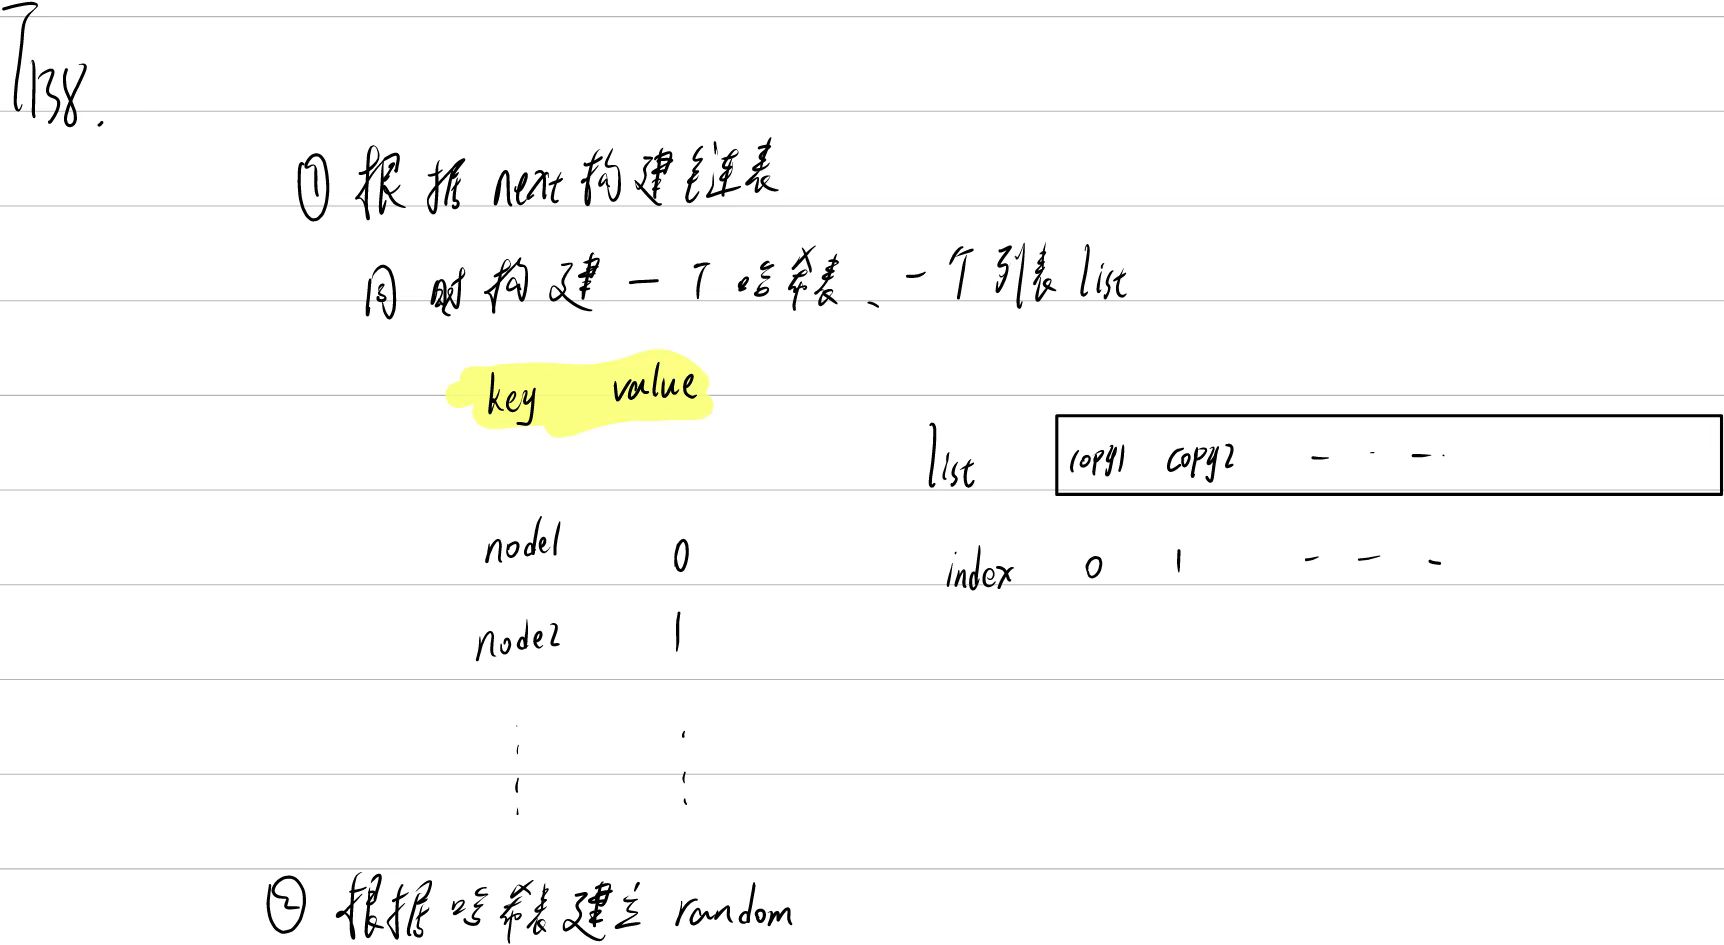 T138.
① 根据next构建链表
同时构建一个哈希表、一个列表list
key value
list copy1 copy2 - · - ·
node1 0
index 0 1 - - -
node2 1
② 根据哈希表建立random